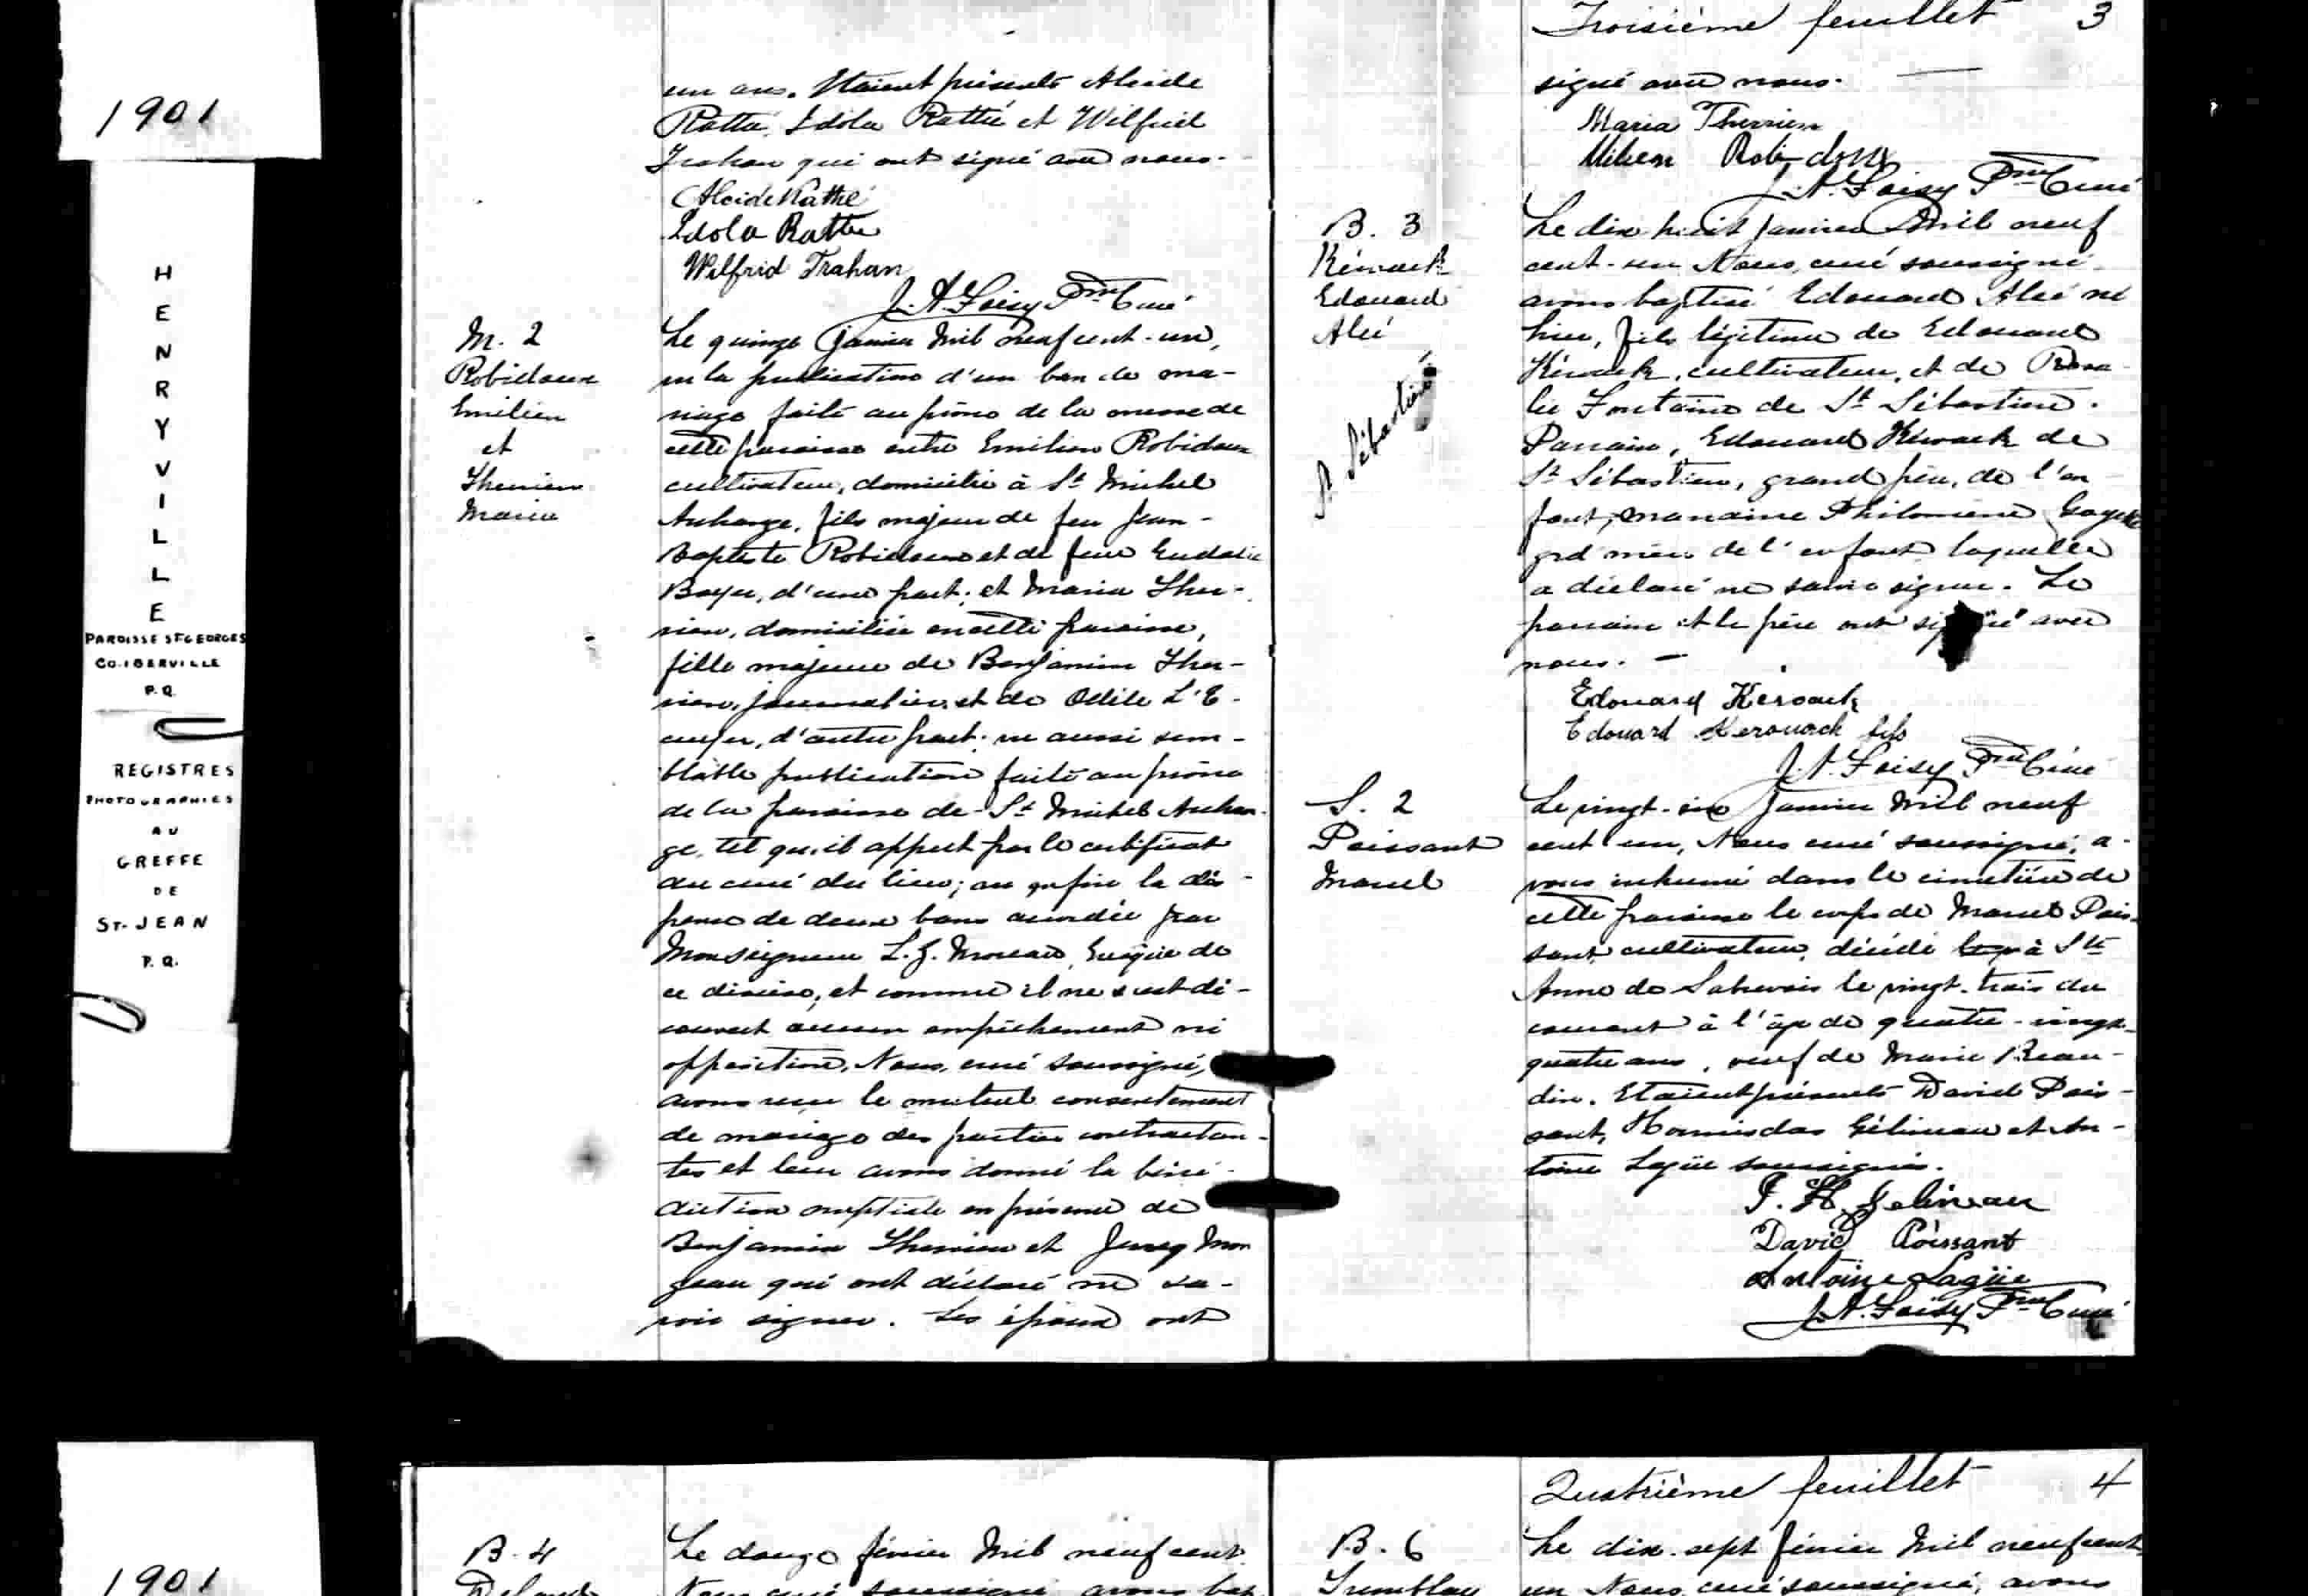 1901
HENRYVILLE
PAROISSE ST GEORGES
CO. IBERVILLE
P.Q.
REGISTRES
PHOTOGRAPHIES
AU
GREFFE
DE
ST-JEAN
P.Q.
un ans. Etaient présents Alcide
Ratté, Edola Rattié et Wilfried
Trahan qui ont signé avec nous.
Alcide Rathé
Edola Rathé
Wilfrid Trahan
J.A. Foisy Ptre Curé
M. 2
Robidoux
Emilien
et
Therrien
Maria
Le quinze Janvier Mil neuf cent-un,
vu la publication d'un ban de ma-
riage faite au prône de la messe de
cette paroisse entre Emilien Robidoux
cultivateur, domicilié à St Michel
Archange, fils majeur de feu Jean-
Baptiste Robidoux et de feue Eudoxie
Boyer, d'une part; et Maria Ther-
rien, domiciliée en cette paroisse,
fille majeure de Benjamin Ther-
rien, journalier, et de Odile L'E-
cuyer, d'autre part; vu aussi sem-
blable publication faite au prône
de la paroisse de St Michel Archan-
ge, tel qu'il appert par le certificat
du curé du lieu; vu enfin la dis-
pense de deux bans accordée par
Monseigneur L. Z. Moreau, Evêque de
ce diocèse; et comme il ne s'est dé-
couvert aucun empêchement ni
opposition, Nous, curé soussigné,
avons reçu le mutuel consentement
de mariage des parties contractan-
tes et leur avons donné la béné-
diction nuptiale en présence de
Benjamin Therrien et Mon
geau qui ont déclaré ne sa-
voir signer. Les époux ont
Troisième feuillet 3
signé avec nous.
Maria Therrien
Milien Robidoux
J.A. Foisy Ptre Curé
B. 3
Kérouack
Edouard
Alcé
St Sébastien
Le dix huit Janvier Mil neuf
cent-un Nous, curé soussigné
avons baptisé Edouard Alcé né
hier, fils légitime de Edouard
Kérouack, cultivateur, et de Rosa-
lie Fontaine de St Sébastien.
Parrain, Edouard Kérouack de
St Sébastien, grand père, de l'en
fant; marraine Philomène Goyette
grd'mère de l'enfant laquelle
a déclaré ne savoir signer. Le
parrain et le père ont signé avec
nous. —
Edouard Kerouack
Edouard Kerouack fils
J.A. Foisy Ptre Curé
S. 2
Poissant
Marcel
Le vingt-six Janvier Mil neuf
cent un, Nous curé soussigné, a-
vons inhumé dans le cimetière de
cette paroisse le corps de Marcel Pois-
sant, cultivateur, décédé à Ste
Anne de Sabrevois le vingt-trois du
courant à l'âge de quatre-vingt-
quatre ans, veuf de Marie Beau-
din. Etaient présents David Pois-
sant, Hormisdas Gélineau et An-
toine Lagüe soussignés.
J. H. Gelineau
David Poissant
Antoine Lagüe
J.A. Foisy Ptre Curé
1901
B. 4
Le douze février Mil neuf cent
Nous curé soussigné avons bap
Quatrième feuillet 4
B. 6
Tremblay
Le dix-sept février Mil neuf cent
un Nous, curé soussigné, avons